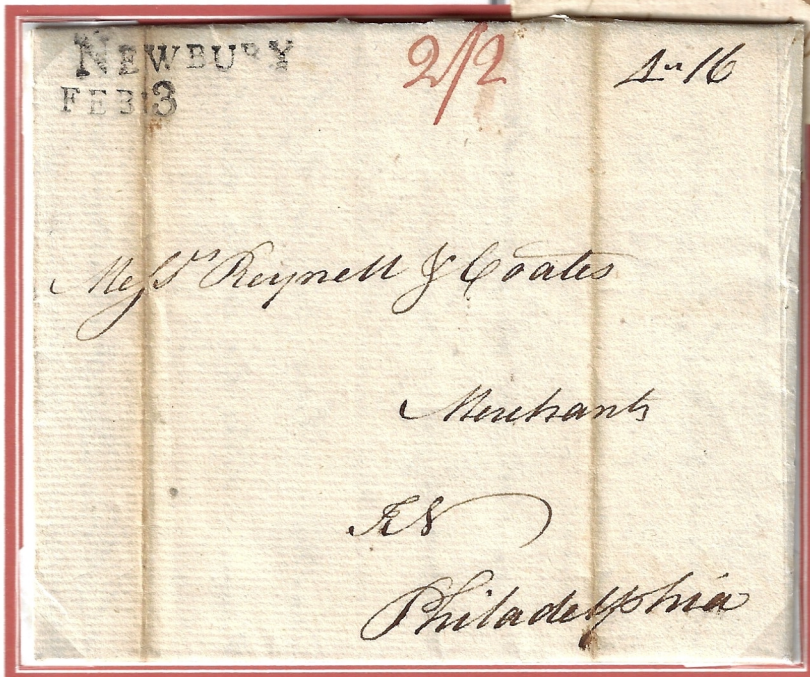 NEWBURY
FEB:3
2/2
4" 16
Messrs Reynell & Coates
Merchants
Philadelphia